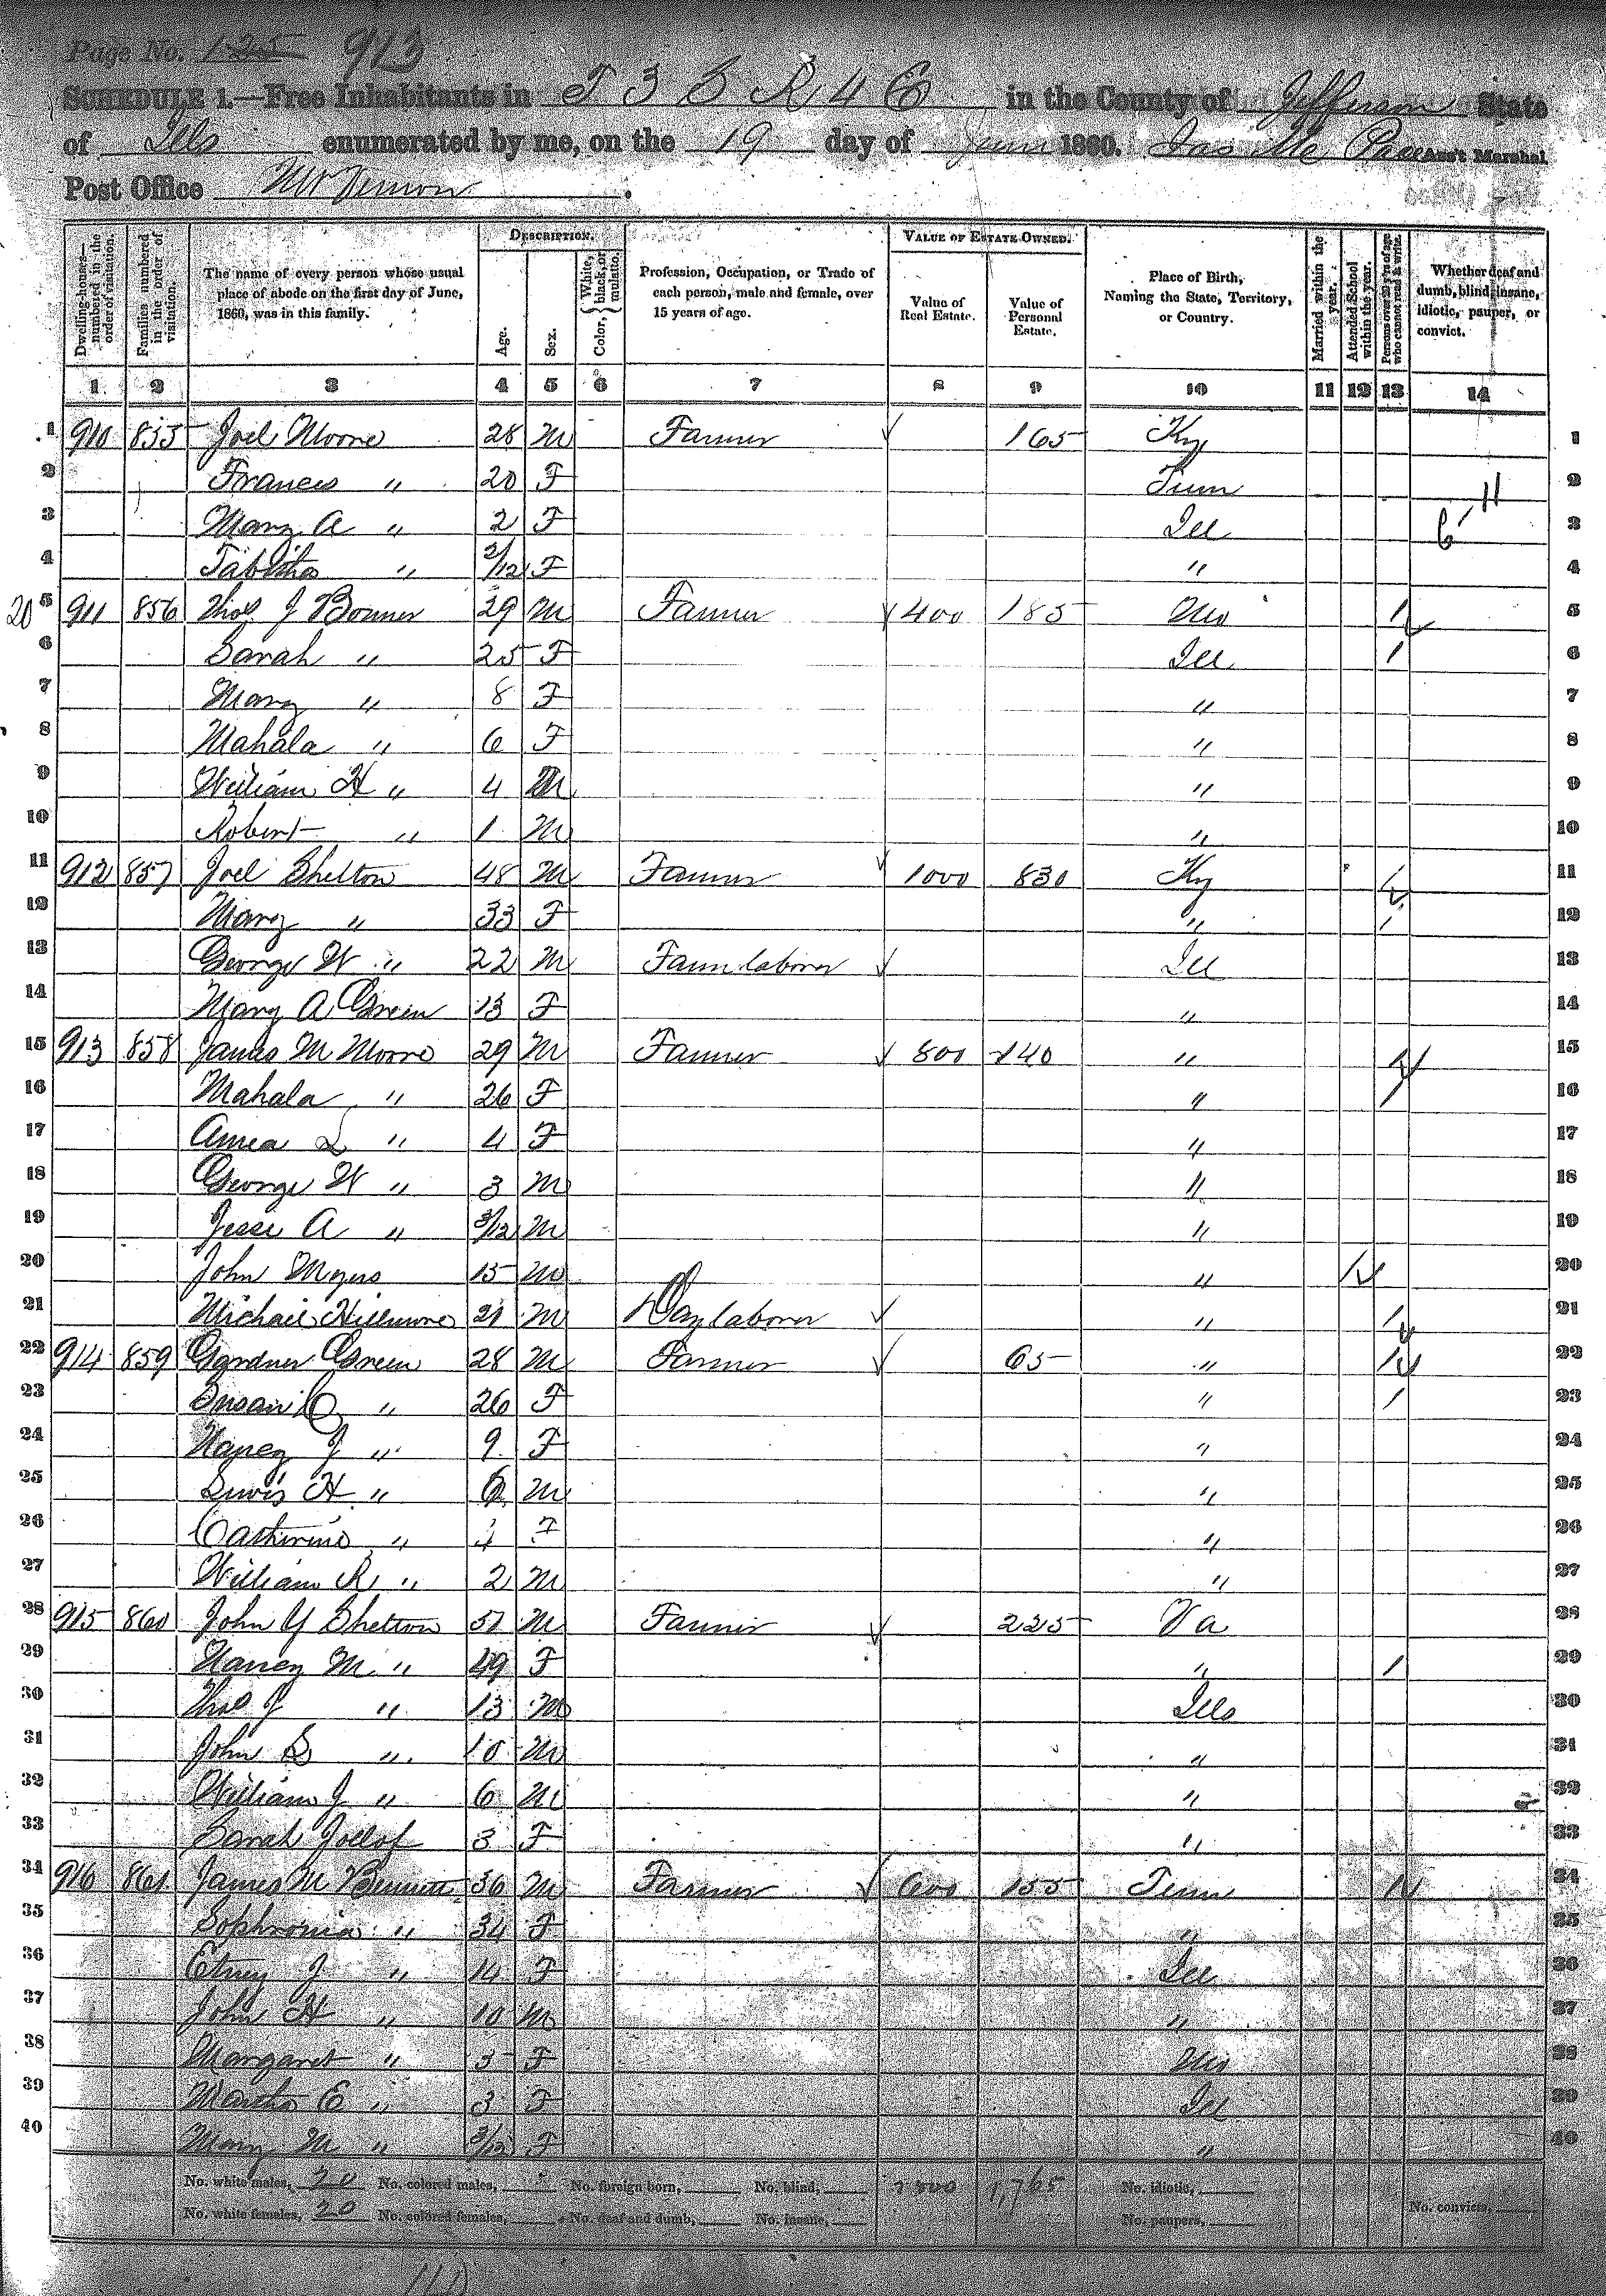 Page No. 125 913
SCHEDULE 1.—Free Inhabitants in T 3 S R 4 E in the County of Jefferson State
of Ills enumerated by me, on the 19 day of June 1860. Jas Mc Pace Ass't Marshal
Post Office Mt Vernon.
Dwelling-houses—numbered in the order of visitation.
Families numbered in the order of visitation.
The name of every person whose usual place of abode on the first day of June, 1860, was in this family.
DESCRIPTION.
Age.
Sex.
Color, { White, black, or mulatto.
Profession, Occupation, or Trade of each person, male and female, over 15 years of age.
VALUE OF ESTATE OWNED.
Value of Real Estate.
Value of Personal Estate.
Place of Birth, Naming the State, Territory, or Country.
Married within the year.
Attended School within the year.
Persons over 20 y'rs of age who cannot read & write.
Whether deaf and dumb, blind, insane, idiotic, pauper, or convict.
1 2 3 4 5 6 7 8 9 10 11 12 13 14
1 910 855 Joel Moore 28 M Farmer 165 Ky 1
2 Frances " 20 F Tenn 2
3 Mary A " 2 F Ill 3
4 Tabitha " 2/12 F " 4
20 5 911 856 Thos J Bonner 29 M Farmer 400 185 Mo 1 5
6 Sarah " 25 F Ill 1 6
7 Mary " 8 F " 7
8 Mahala " 6 F " 8
9 William H " 4 M " 9
10 Robert " 1 M " 10
11 912 857 Joel Shelton 48 M Farmer 1000 830 Ky 1 11
12 Mary " 33 F " 1 12
13 George W " 22 M Farm laborer Ill 13
14 Mary A Green 13 F " 14
15 913 858 James M Moore 29 M Farmer 800 140 " 1 15
16 Mahala " 26 F " 1 16
17 Amea L " 4 F " 17
18 George W " 3 M " 18
19 Jesse A " 3/12 M " 19
20 John Myers 15 M " 1 20
21 Michael 21 M Day laborer " 1 21
22 914 859 Gardner Green 28 M Farmer 65 " 1 22
23 Susan C " 26 F " 1 23
24 Nancy J " 9 F " 24
25 Lewis H " 6 M " 25
26 Catherine " 4 F " 26
27 William R " 2 M " 27
28 915 860 John Y Shelton 51 M Farmer 225 Va 28
29 Nancy M " 49 F " 1 29
30 Thos J " 13 M Ills 30
31 John S " 10 M " 31
32 William J " 6 M " 32
33 Sarah 3 F " 33
34 916 861 James M Bennett 36 M Farmer 600 155 Tenn 1 34
35 Sophronia " 34 F " 35
36 J " 14 F Ill 36
37 John H " 10 M " 37
38 Margaret " 5 F Mo 38
39 Martha E " 3 F Ill 39
40 Mary M " 3/12 F " 40
No. white males, 20 No. colored males, No. foreign born, No. blind, 1,765 No. idiotic,
No. white females, 20 No. colored females, No. deaf and dumb, No. insane, No. paupers, No. convicts,